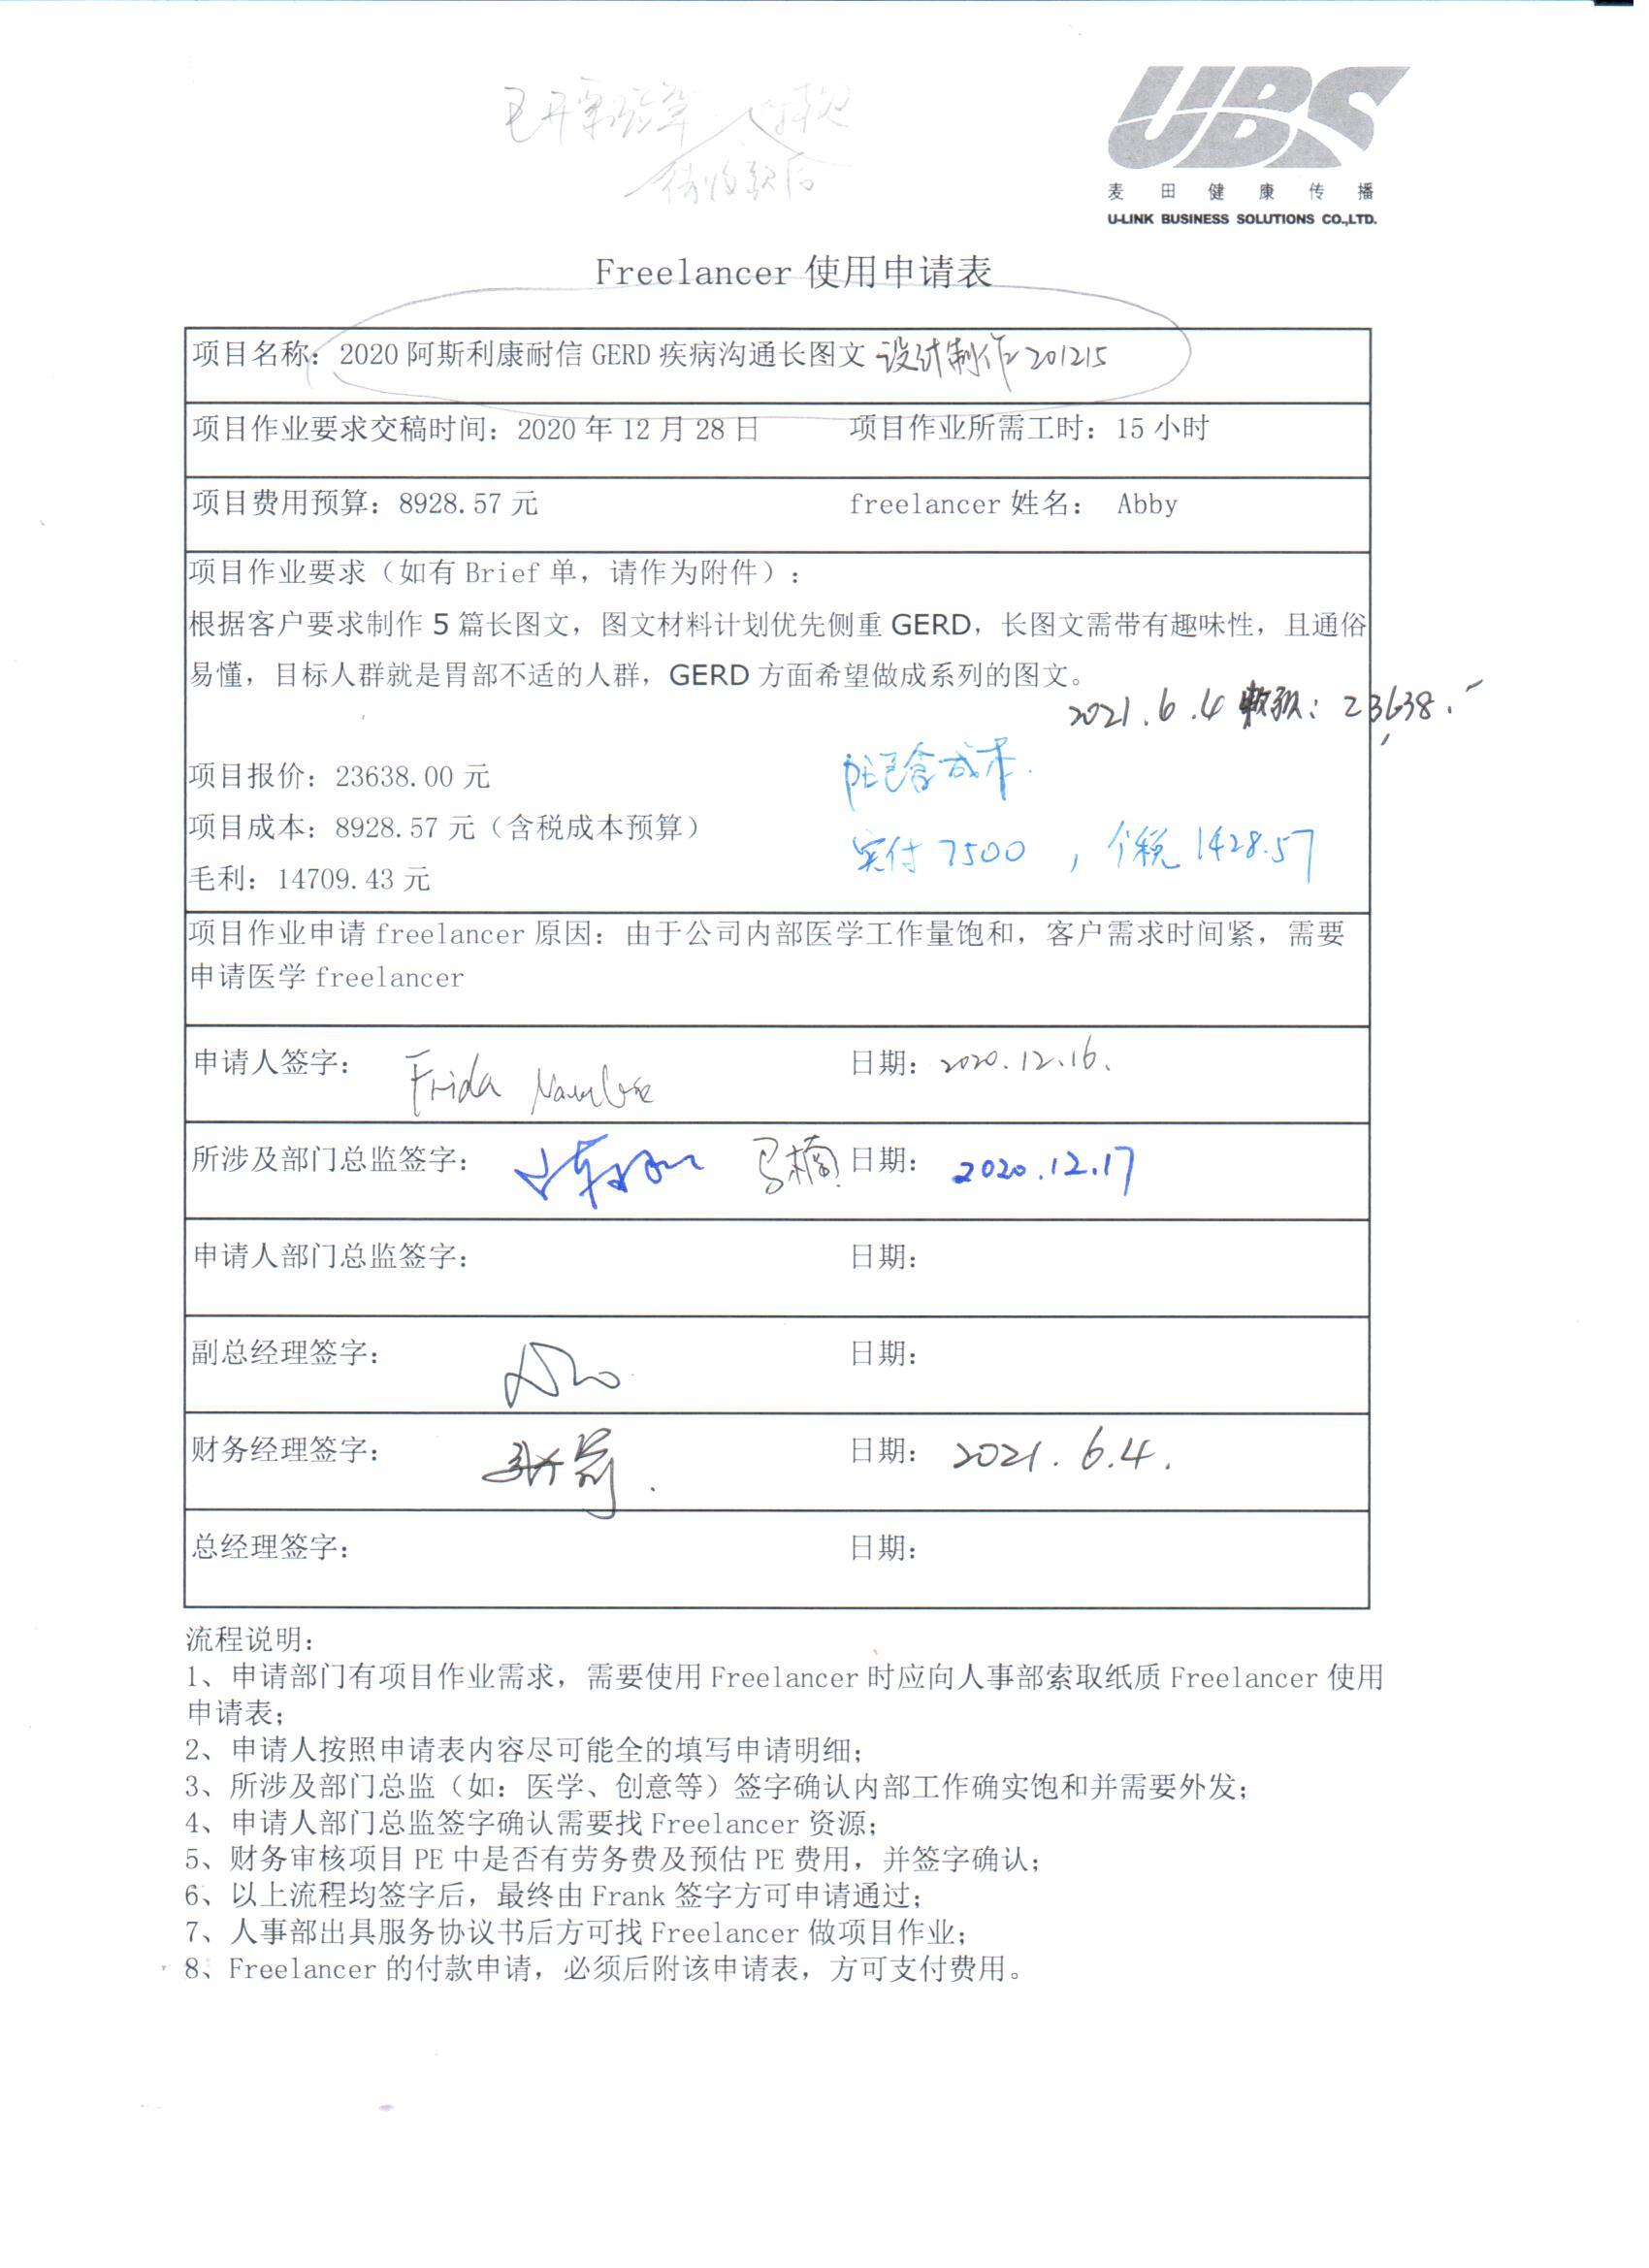 UBS
麦田健康传播
U-LINK BUSINESS SOLUTIONS CO.,LTD.
待收款后
Freelancer 使用申请表
项目名称：2020 阿斯利康耐信 GERD 疾病沟通长图文 设计制作 201215
项目作业要求交稿时间：2020 年 12 月 28 日 项目作业所需工时：15 小时
项目费用预算：8928.57 元 freelancer 姓名： Abby
项目作业要求（如有 Brief 单，请作为附件）：
根据客户要求制作 5 篇长图文，图文材料计划优先侧重 GERD，长图文需带有趣味性，且通俗
易懂，目标人群就是胃部不适的人群，GERD 方面希望做成系列的图文。
2021.6.4 23638.
项目报价：23638.00 元
PE已含成本.
项目成本：8928.57 元（含税成本预算）
实付 7500 ，个税 1428.57
毛利：14709.43 元
项目作业申请 freelancer 原因：由于公司内部医学工作量饱和，客户需求时间紧，需要
申请医学 freelancer
申请人签字： Frida 日期：2020.12.16.
所涉及部门总监签字： 马楠 日期： 2020.12.17
申请人部门总监签字： 日期：
副总经理签字： 日期：
财务经理签字： 日期： 2021.6.4.
总经理签字： 日期：
流程说明：
1、申请部门有项目作业需求，需要使用 Freelancer 时应向人事部索取纸质 Freelancer 使用
申请表；
2、申请人按照申请表内容尽可能全的填写申请明细；
3、所涉及部门总监（如：医学、创意等）签字确认内部工作确实饱和并需要外发；
4、申请人部门总监签字确认需要找 Freelancer 资源；
5、财务审核项目 PE 中是否有劳务费及预估 PE 费用，并签字确认；
6、以上流程均签字后，最终由 Frank 签字方可申请通过；
7、人事部出具服务协议书后方可找 Freelancer 做项目作业；
8、Freelancer 的付款申请，必须后附该申请表，方可支付费用。